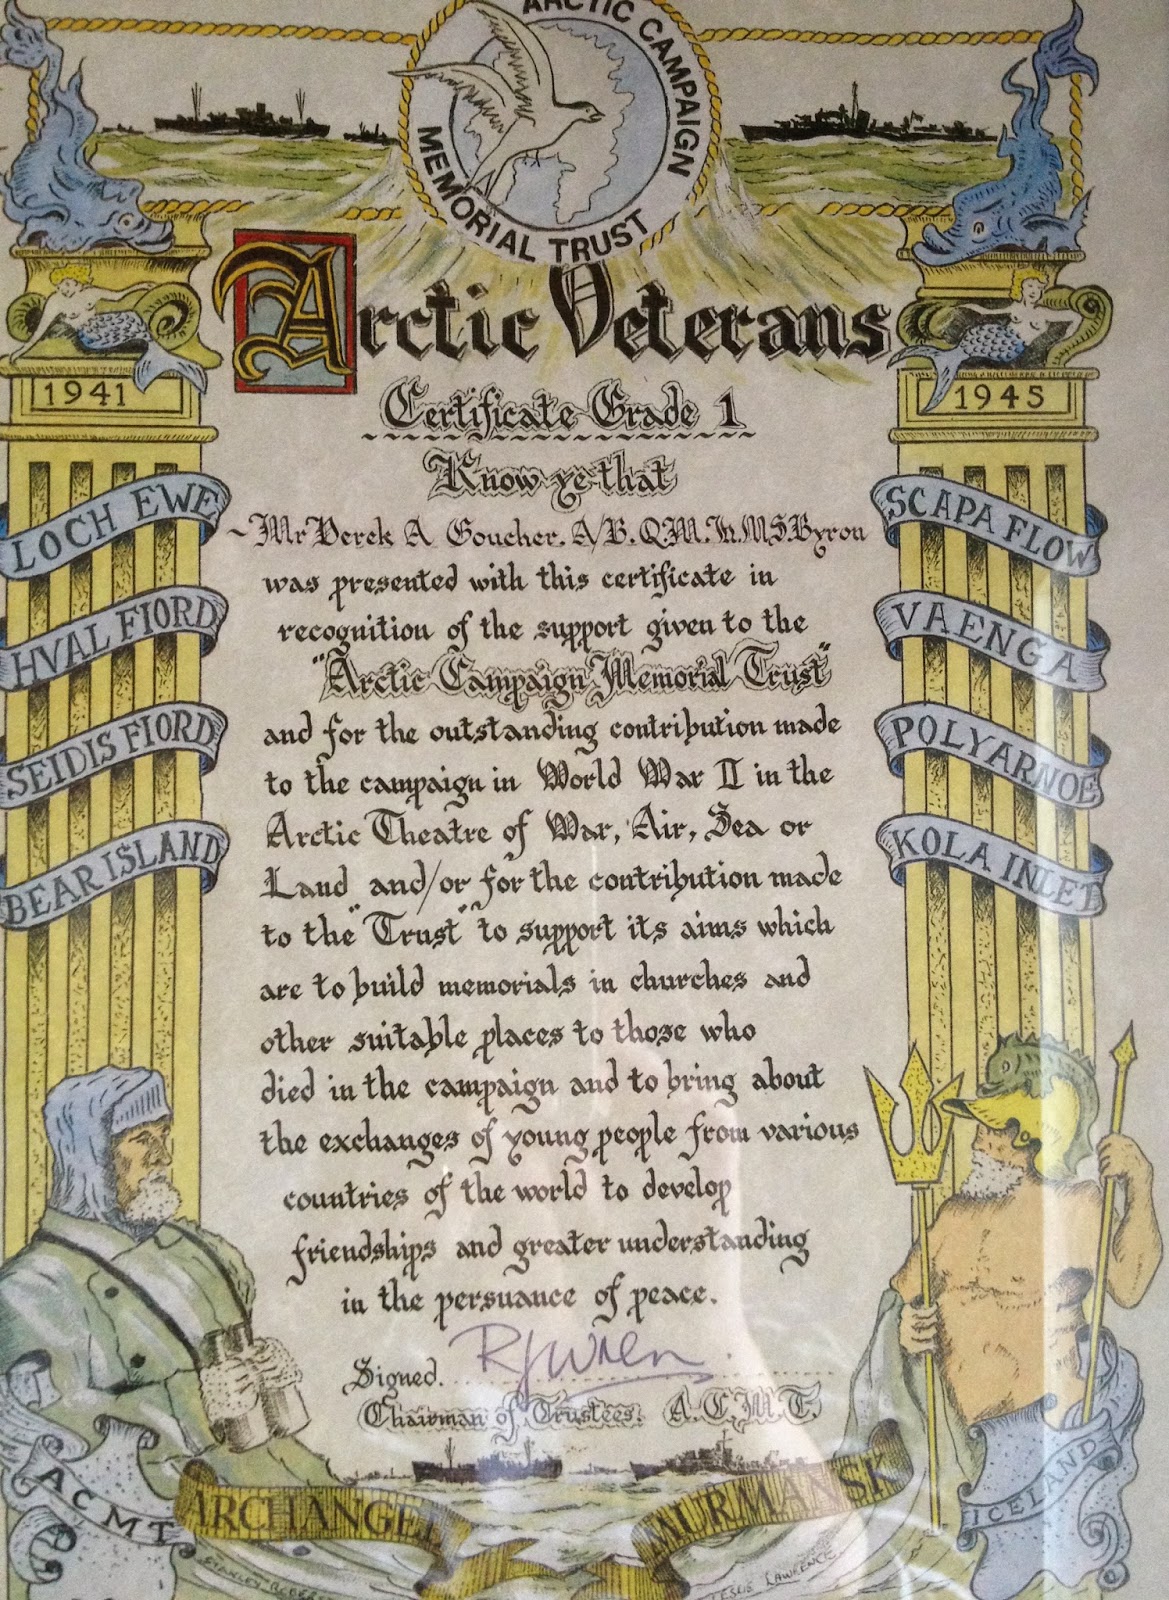 ARCTIC CAMPAIGN
MEMORIAL TRUST
Arctic Veterans
1941
1945
Certificate Grade 1
Know ye that
~Mr Derek A Goucher. A/B. Q.M. In. M.S. Byron
was presented with this certificate in
recognition of the support given to the
"Arctic Campaign Memorial Trust"
and for the outstanding contribution made
to the campaign in World War II in the
Arctic Theatre of War, Air, Sea or
Land and/or for the contribution made
to the "Trust" to support its aims which
are to build memorials in churches and
other suitable places to those who
died in the campaign and to bring about
the exchanges of young people from various
countries of the world to develop
friendships and greater understanding
in the persuance of peace.
Signed.
Chairman of Trustees. A.C.M.T.
LOCH EWE
HVAL FIORD
SEIDIS FIORD
BEAR ISLAND
SCAPA FLOW
VAENGA
POLYARNOE
KOLA INLET
ACMT
ARCHANGEL
MURMANSK
ICELAND
STANLEY
LESLIE LAWRENCE